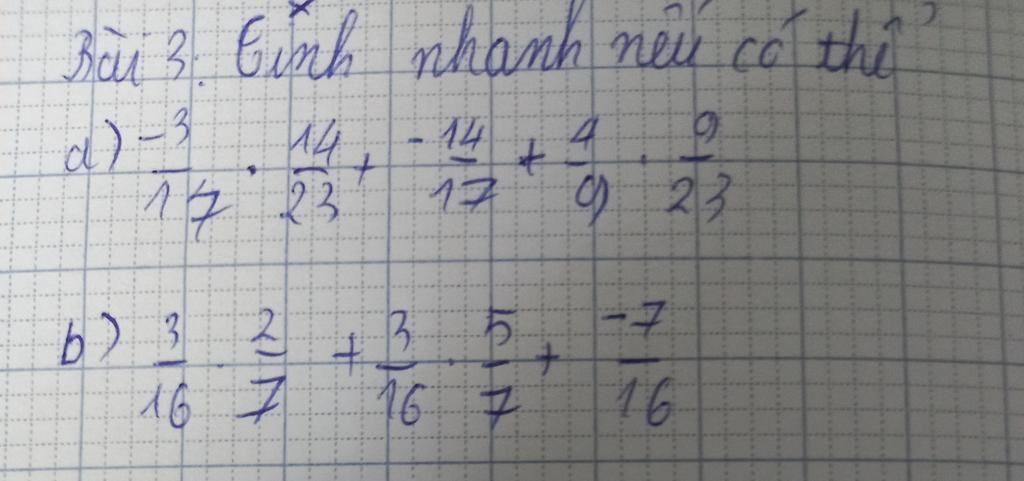 Bài 3: Tính nhanh nếu có thể
a) -3/17 . 14/23 + -14/17 + 4/9 . 9/23
b) 3/16 . 2/7 + 3/16 . 5/7 + -7/16